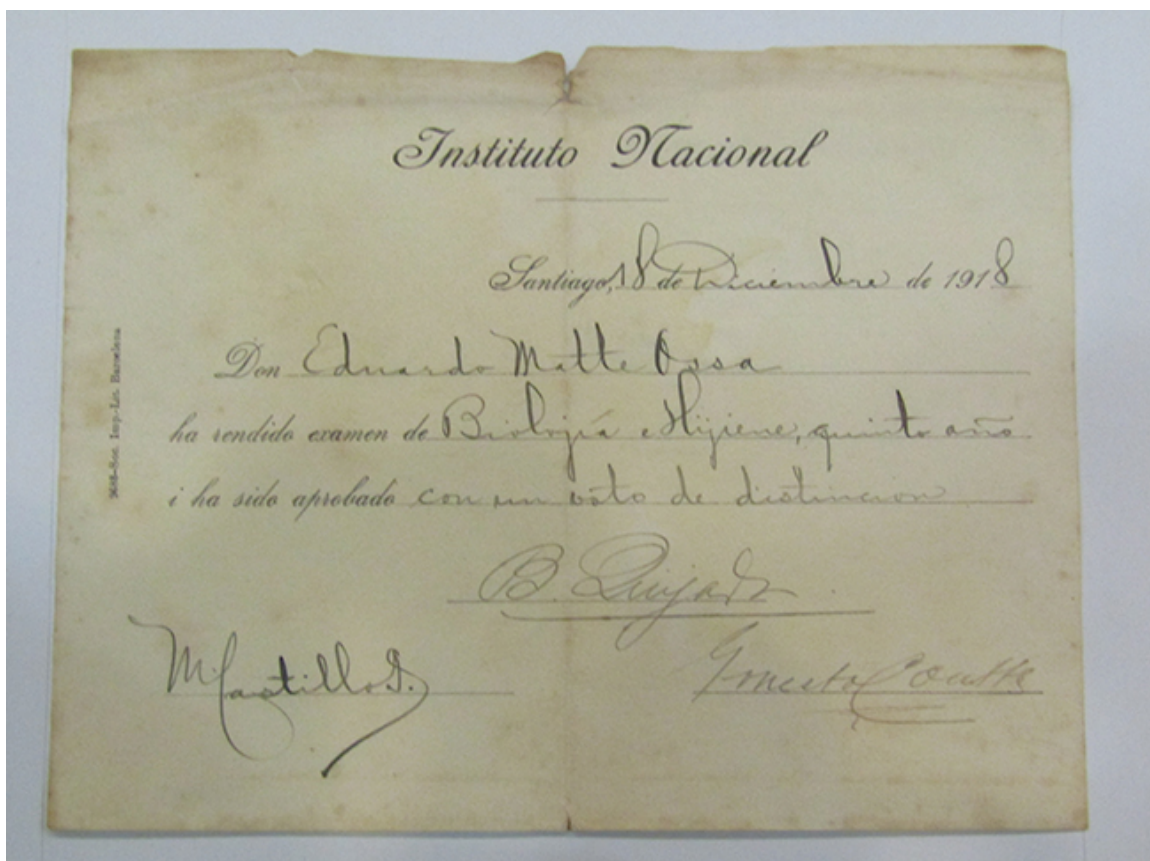 Instituto Nacional
Santiago, 18 de Diciembre de 1918
Don Eduardo Matte Ossa
ha rendido examen de Biología e Hijiene, quinto año
i ha sido aprobado con un voto de distincion
B. Quijada
M. Castillo
Ernesto
Soc. Imp.-Lit. Barcelona